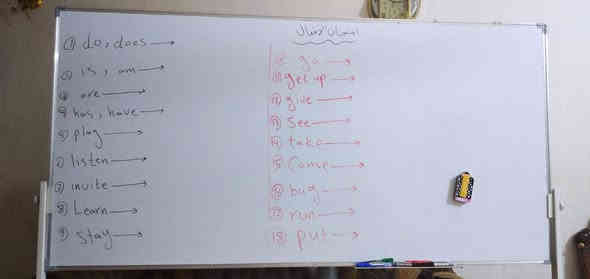 ① do, does →
② is, am →
③ are →
④ has, have →
⑤ play →
⑥ listen →
⑦ invite →
⑧ Learn →
⑨ stay →
⑩ go →
⑪ get up →
⑫ give →
⑬ See →
⑭ take →
⑮ Come →
⑯ buy →
⑰ run →
⑱ put →